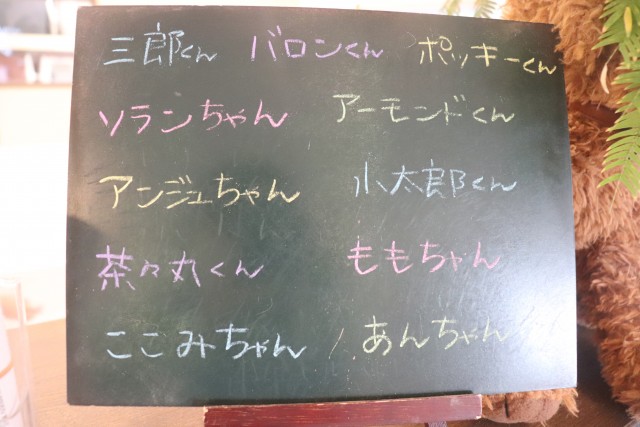 三郎くん バロンくん ポッキーくん
ソランちゃん アーモンドくん
アンジュちゃん 小太郎くん
茶々丸くん ももちゃん
ここみちゃん / あんちゃん